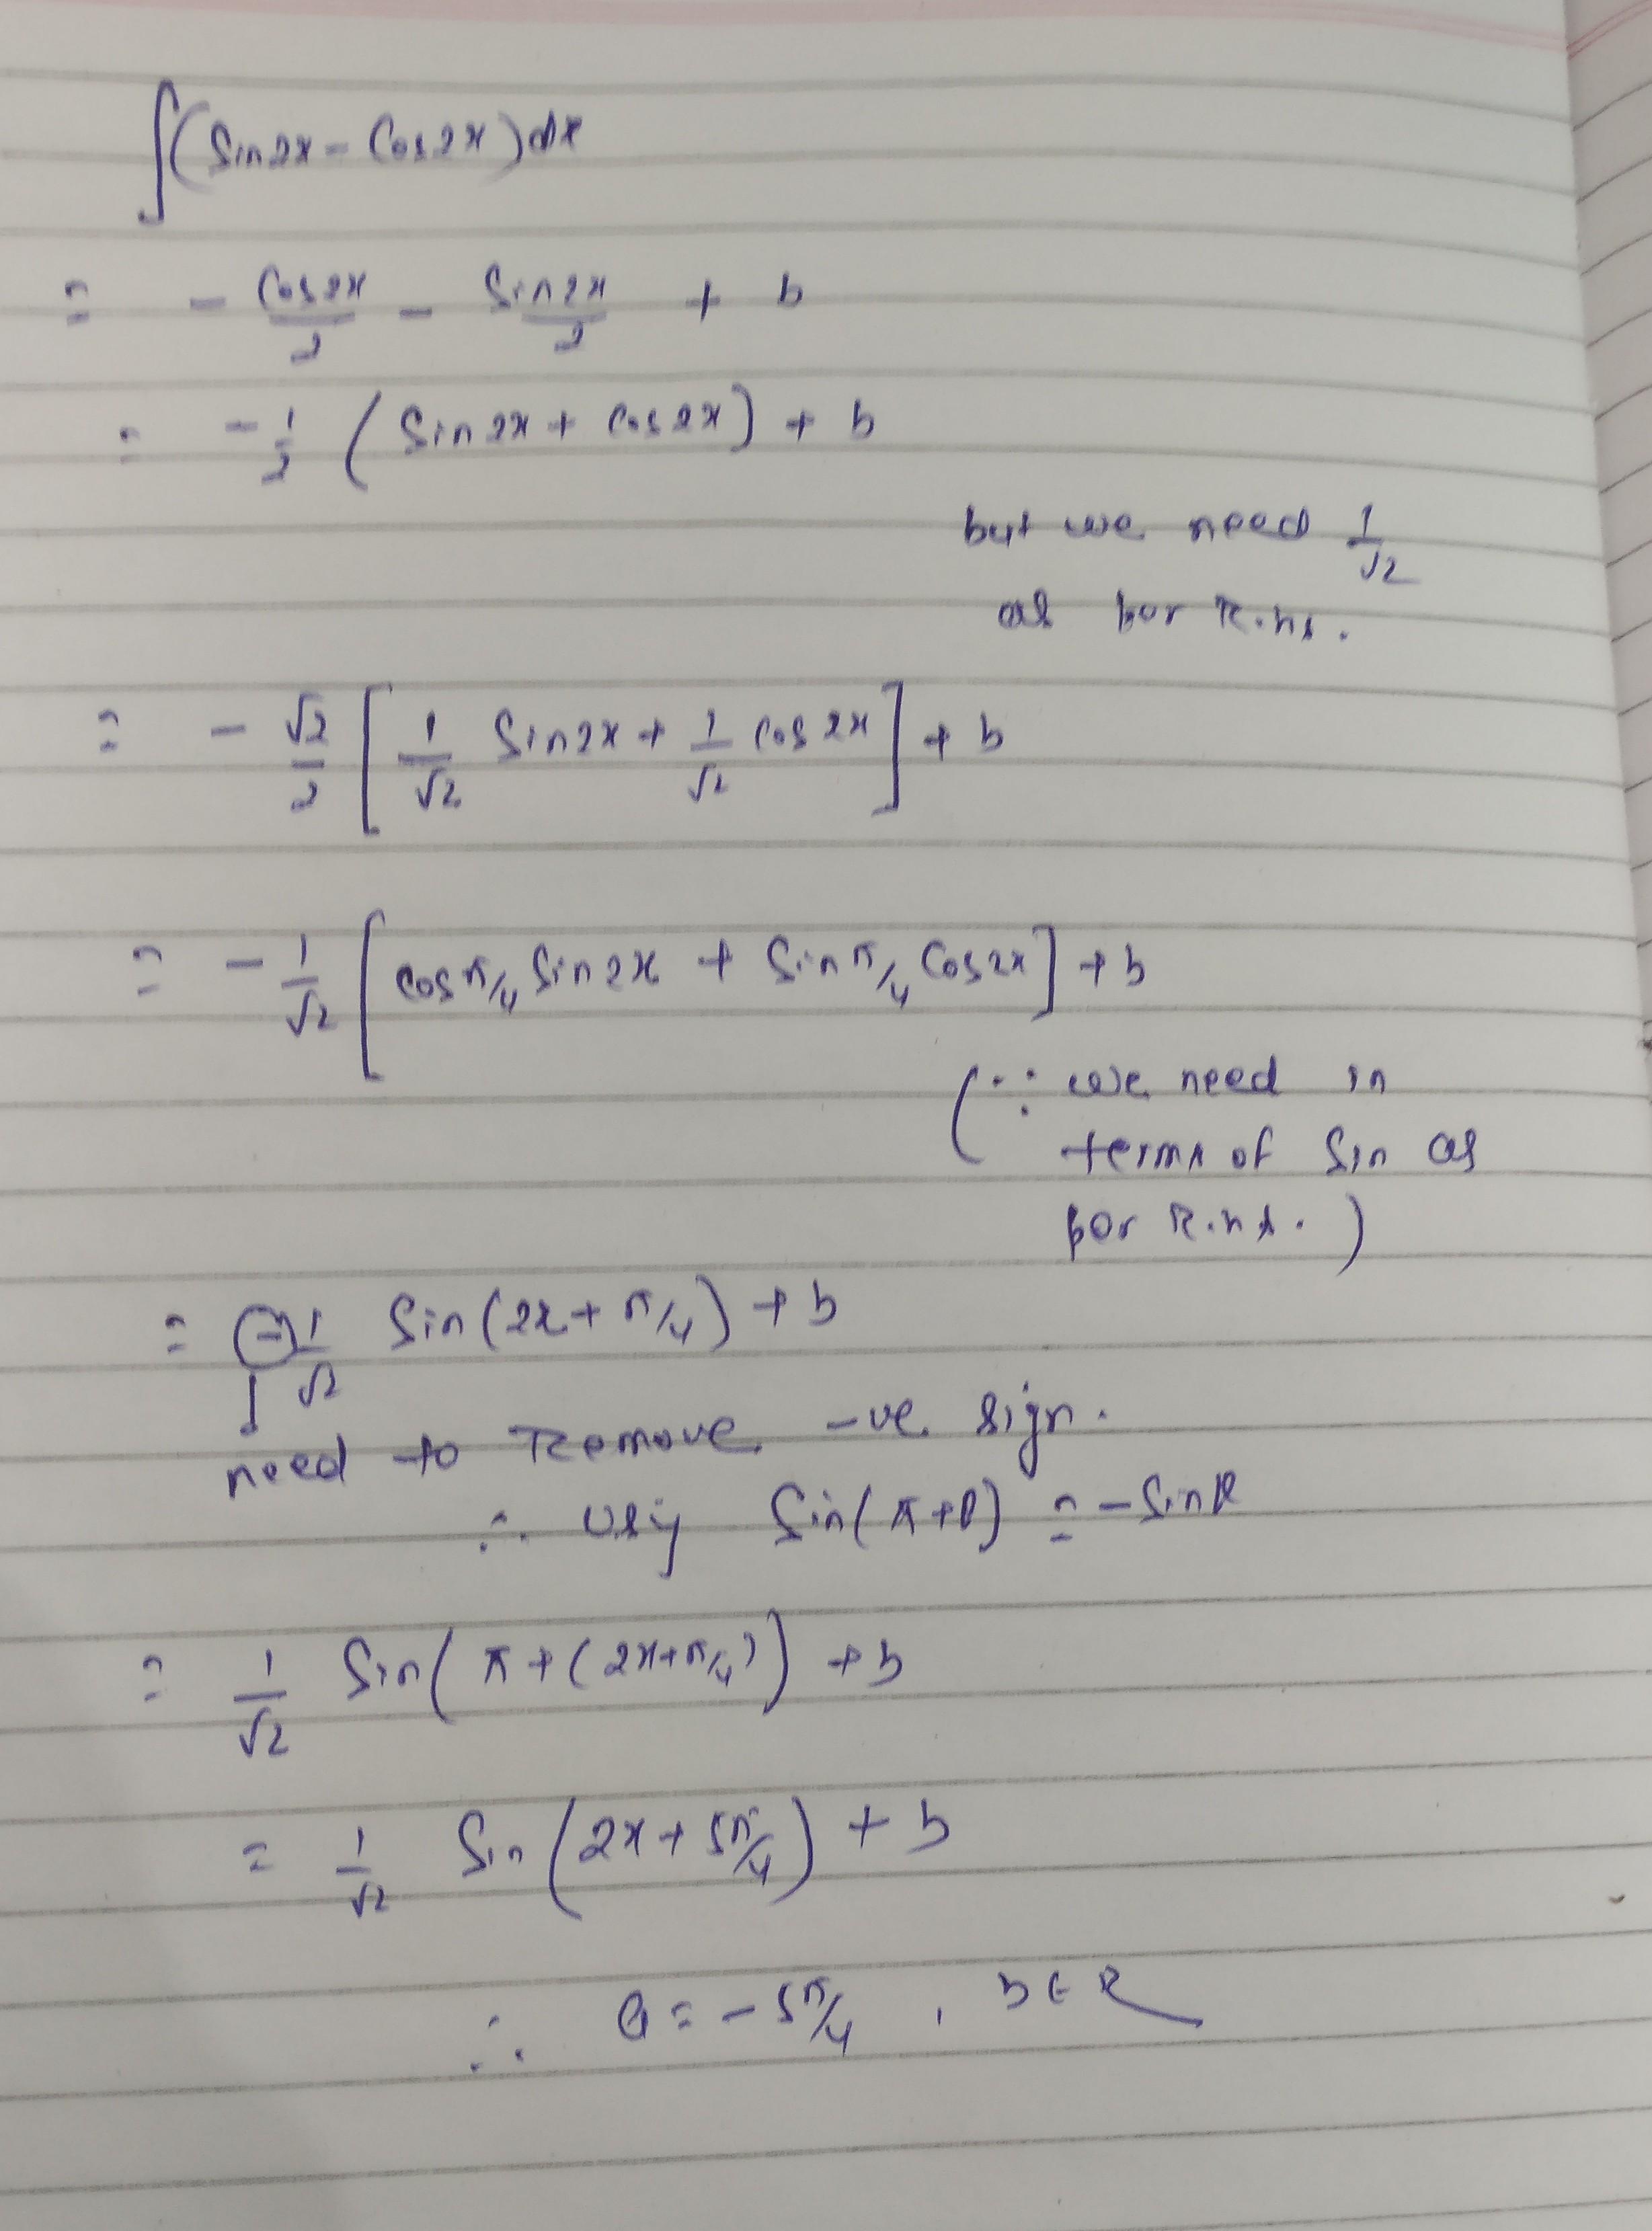 ∫(Sin2x - Cos2x)dx
= - Cos2x/2 - Sin2x/2 + b
= -1/2 (Sin2x + Cos2x) + b
but we need 1/√2
as per R.h.s.
= - √2/2 [1/√2 Sin2x + 1/√2 Cos2x] + b
= - 1/√2 [cos π/4 Sin2x + Sin π/4 Cos2x] + b
(∵ we need in
terms of Sin as
per R.h.s.)
= - 1/√2 Sin(2x + π/4) + b
need to Remove -ve sign.
∴ using Sin(π+θ) = -Sinθ
= 1/√2 Sin(π + (2x+π/4)) + b
= 1/√2 Sin(2x + 5π/4) + b
∴ a = -5π/4, b ∈ R